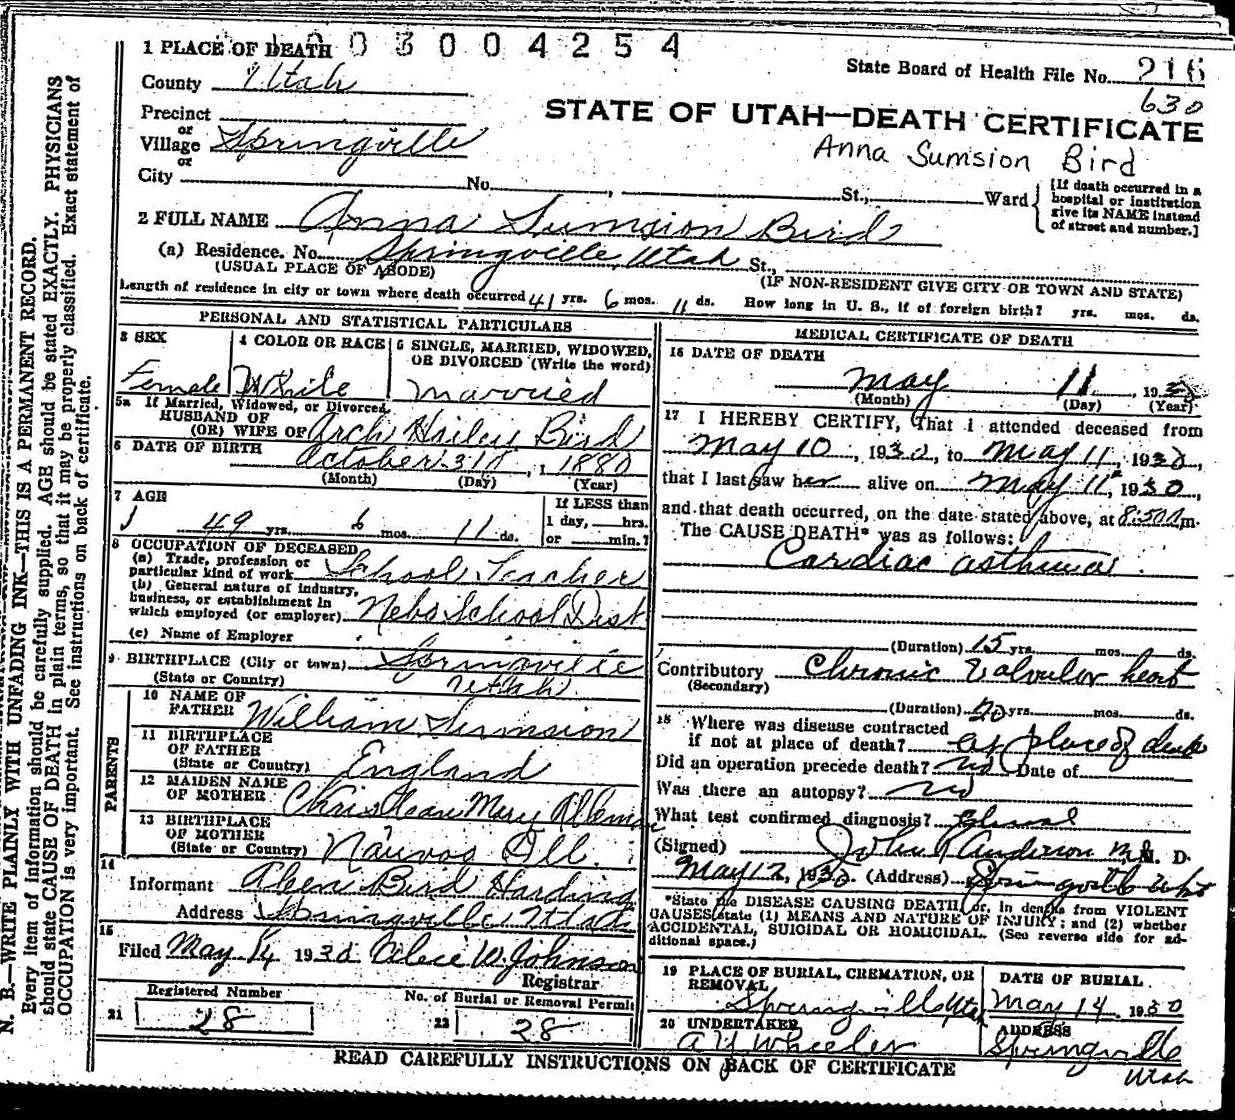 003004254
1 PLACE OF DEATH
State Board of Health File No. 216
County Utah
630
Precinct
STATE OF UTAH—DEATH CERTIFICATE
or
Village Springville
Anna Sumsion Bird
or
City No. , St., Ward
[If death occurred in a hospital or institution give its NAME instead of street and number.]
2 FULL NAME Anna Sumsion Bird
(a) Residence. No. Springville, Utah St.,
(USUAL PLACE OF ABODE) (IF NON-RESIDENT GIVE CITY OR TOWN AND STATE)
Length of residence in city or town where death occurred 41 yrs. 6 mos. 11 ds. How long in U. S., if of foreign birth? yrs. mos. ds.
PERSONAL AND STATISTICAL PARTICULARS
3 SEX
Female
4 COLOR OR RACE
White
5 SINGLE, MARRIED, WIDOWED,
OR DIVORCED (Write the word)
Married
5a If Married, Widowed, or Divorced
HUSBAND OF
(OR) WIFE OF Arch Bird
6 DATE OF BIRTH
October 31st, 1880
(Month) (Day) (Year)
7 AGE
49 yrs. 6 mos. 11 ds.
If LESS than
1 day, hrs.
or min.?
8 OCCUPATION OF DECEASED
(a) Trade, profession or
particular kind of work School Teacher
(b) General nature of industry,
business, or establishment in
which employed (or employer) Nebo School Dist
(c) Name of Employer
9 BIRTHPLACE (City or town) Springville
(State or Country) Utah
PARENTS
10 NAME OF
FATHER William Sumsion
11 BIRTHPLACE
OF FATHER
(State or Country) England
12 MAIDEN NAME
OF MOTHER Mary
13 BIRTHPLACE
OF MOTHER
(State or Country) Nauvoo Ill.
14
Informant Bird Harding
Address Springville Utah
15
Filed May 14 1930 Alice W. Johnson
Registrar
Registered Number
21 28
No. of Burial or Removal Permit
22 28
MEDICAL CERTIFICATE OF DEATH
16 DATE OF DEATH
May 11, 1930
(Month) (Day) (Year)
17 I HEREBY CERTIFY, That I attended deceased from
May 10, 1930, to May 11, 1930,
that I last saw her alive on May 11, 1930,
and that death occurred, on the date stated above, at 8:50 m.
The CAUSE DEATH* was as follows:
Cardiac asthma
(Duration) 15 yrs. mos. ds.
Contributory Chronic Valvular heart
(Secondary)
(Duration) 20 yrs. mos. ds.
18 Where was disease contracted
if not at place of death? at place of death
Did an operation precede death? no Date of
Was there an autopsy? no
What test confirmed diagnosis? clinical
(Signed) John Anderson M. D.
May 12, 1930 (Address) Springville Utah
*State the DISEASE CAUSING DEATH, or, in deaths from VIOLENT
CAUSES state (1) MEANS AND NATURE OF INJURY; and (2) whether
ACCIDENTAL, SUICIDAL OR HOMICIDAL. (See reverse side for ad-
ditional space.)
19 PLACE OF BURIAL, CREMATION, OR
REMOVAL
Springville Utah
DATE OF BURIAL
May 14, 1930
20 UNDERTAKER
A Y Wheeler
ADDRESS
Springville
Utah
READ CAREFULLY INSTRUCTIONS ON BACK OF CERTIFICATE
N. B.—WRITE PLAINLY WITH UNFADING INK—THIS IS A PERMANENT RECORD.
Every item of information should be carefully supplied. AGE should be stated EXACTLY. PHYSICIANS
should state CAUSE OF DEATH in plain terms, so that it may be properly classified. Exact statement of
OCCUPATION is very important. See instructions on back of certificate.